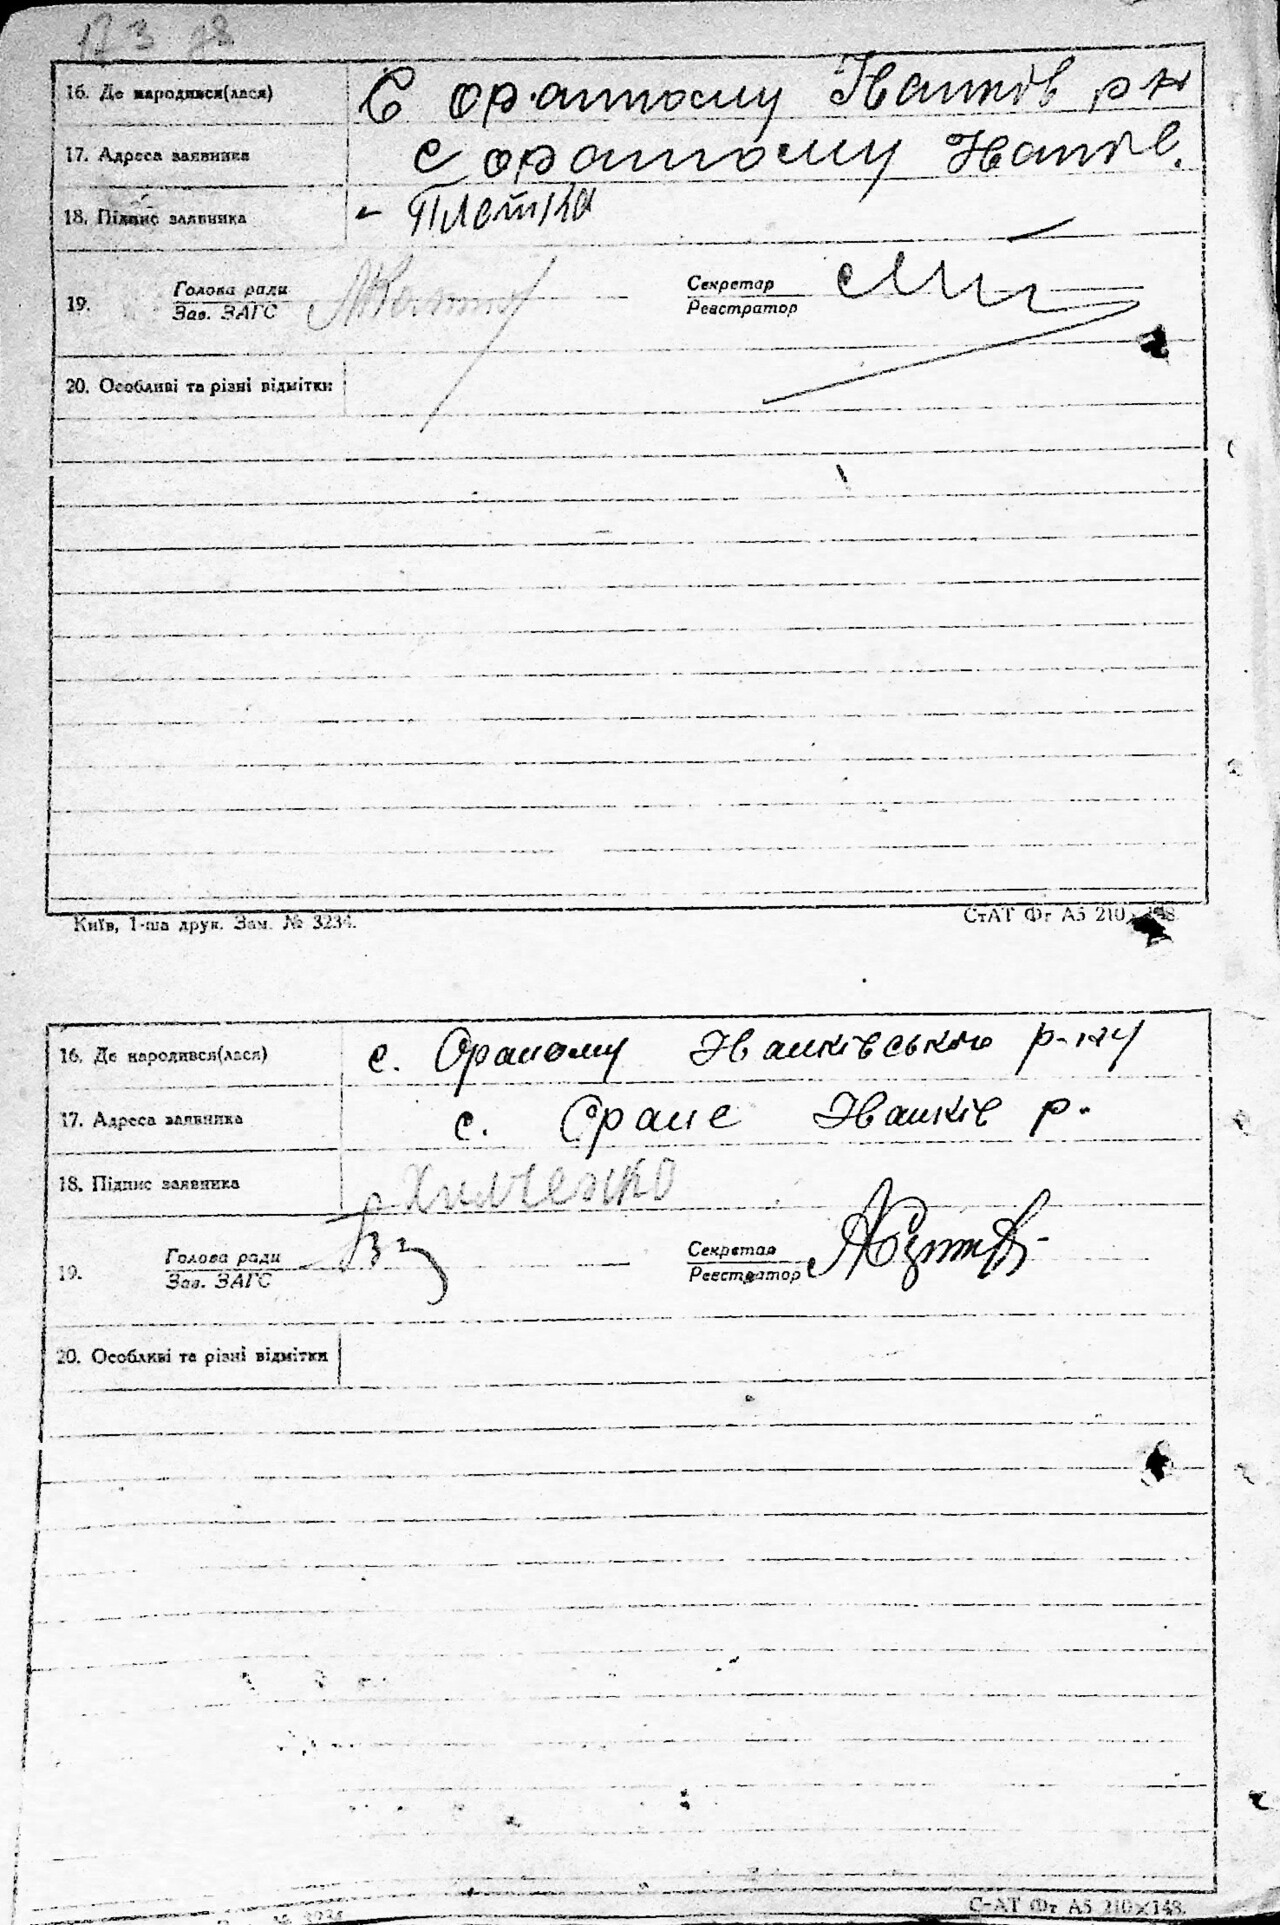 173 78
16. Де народився(лася) С оратому Іванків р-н
17. Адреса заявника с оратому Іванків.
18. Підпис заявника
19. Голова ради Секретар
Зав. ЗАГС Реєстратор
20. Особливі та різні відмітки
Київ, 1-ша друк. Зам. № 3234. СтАТ Фт А5 210×148.
16. Де народився(лася) с. Ораному Іванківського р-ну
17. Адреса заявника с. Оране Іванків р.
18. Підпис заявника Хильченко
19. Голова ради Секретар
Зав. ЗАГС Реєстратор
20. Особливі та різні відмітки
№ 3234 С-АТ Фт А5 210×148.